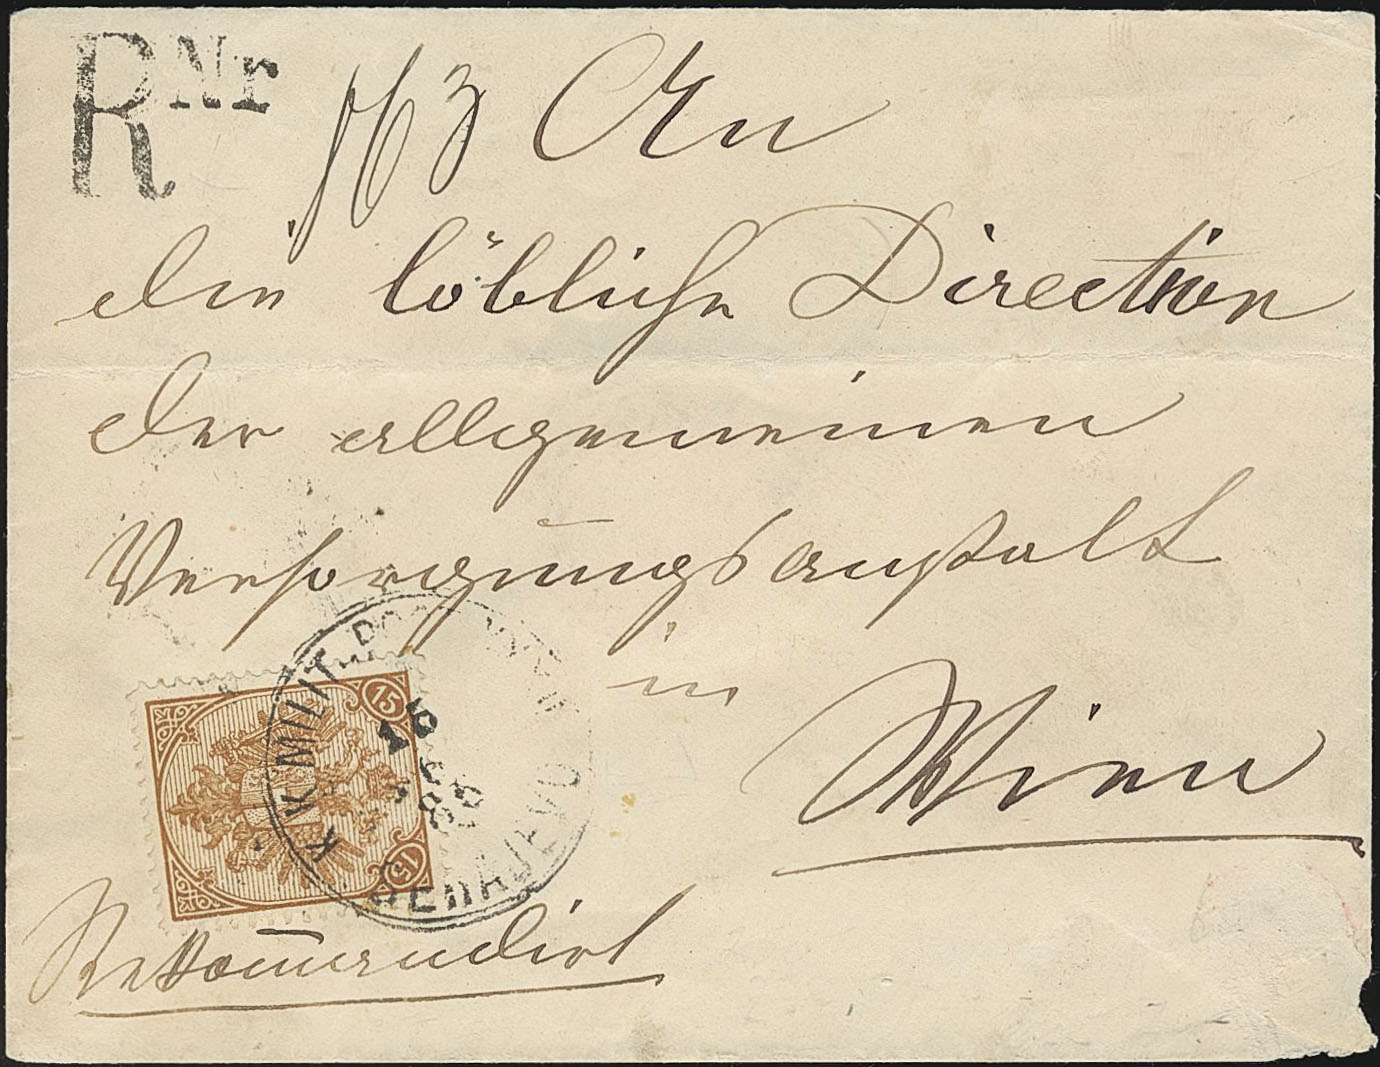 R Nr 163 An
die löbliche Direction
der allgemeinen
Versorgungsanstalt
in
Wien
15
15
K. K. MILIT. POST
SERAJEVO
Rekommandirt